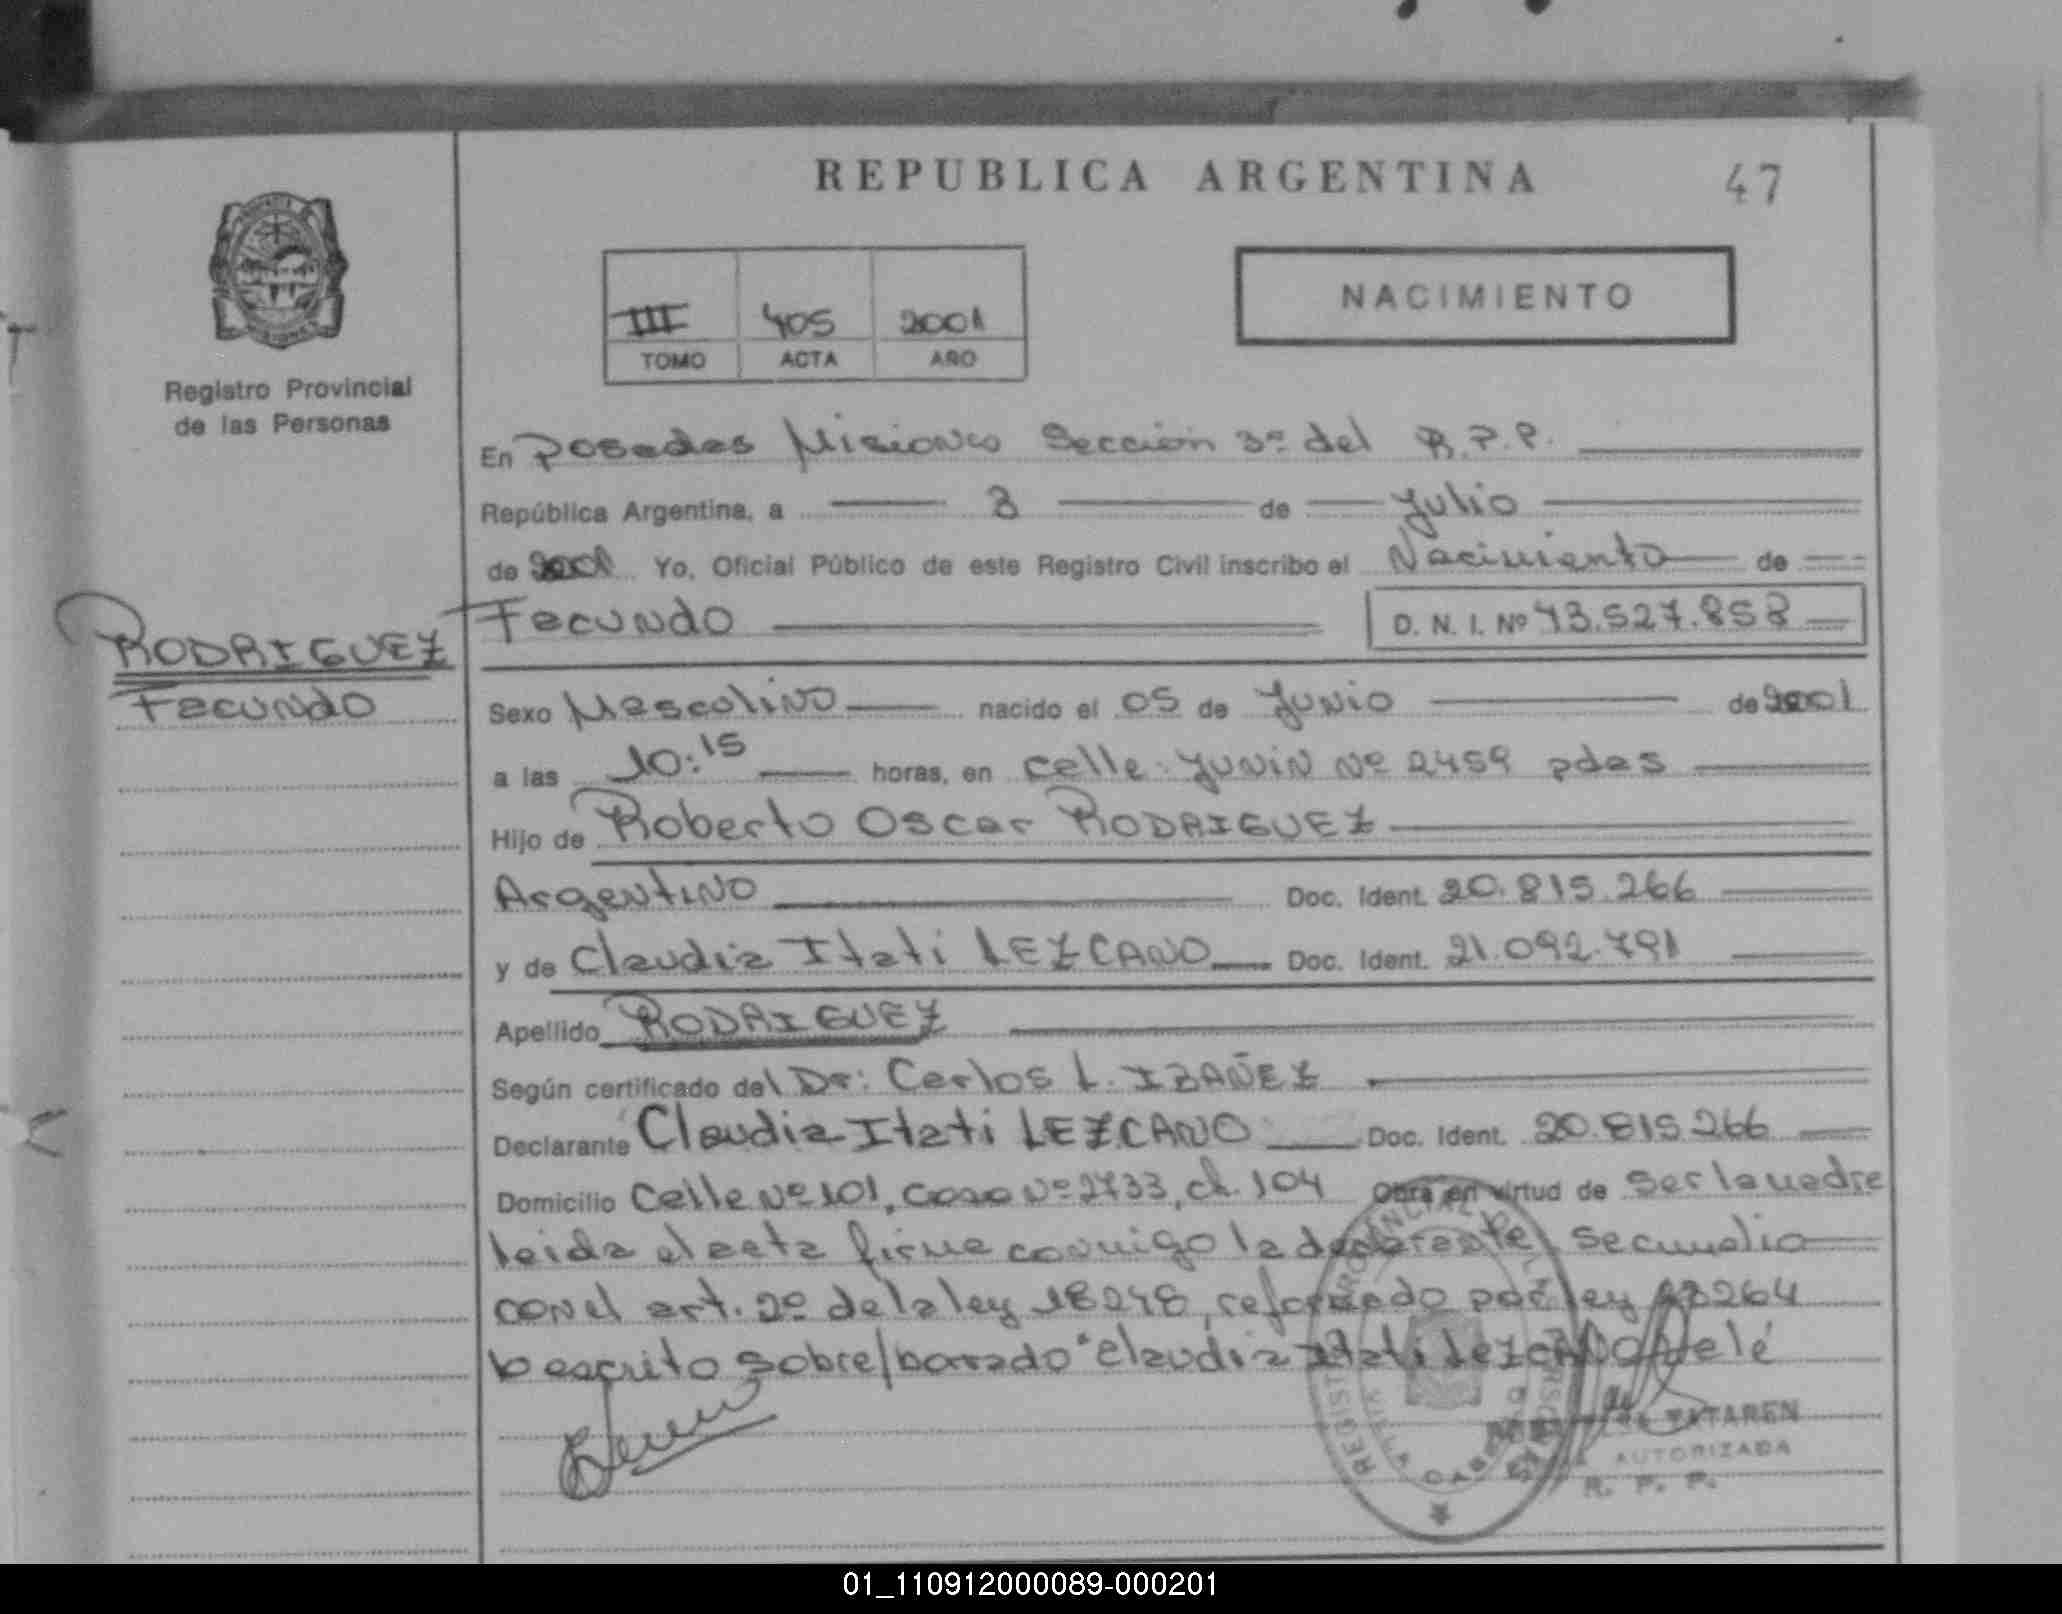 REPUBLICA ARGENTINA
47
III 405 2001
TOMO ACTA AÑO
NACIMIENTO
Registro Provincial
de las Personas
En Posadas Misiones Sección 3º del R.P.P.
República Argentina, a 3 de Julio
de 2001 Yo, Oficial Público de este Registro Civil inscribo el Nacimiento de
Facundo D. N. I. Nº 43.527.858
RODRIGUEZ
Facundo
Sexo Masculino nacido el 05 de Junio de 2001
a las 10:15 horas, en calle Junin Nº 2459 pdas
Hijo de Roberto Oscar RODRIGUEZ
Argentino Doc. Ident. 20.815.266
y de Claudia Itati LEZCANO Doc. Ident. 21.092.791
Apellido RODRIGUEZ
Según certificado del Dr: Carlos L. IBAÑEZ
Declarante Claudia Itati LEZCANO Doc. Ident. 20.815266
Domicilio Calle Nº 101, casa Nº 2733, ch. 104 Obra en virtud de ser la madre
leida el acta firma conmigo la declarante
con el art. 2º de la ley 18248, reformado por ley 23264
lo escrito sobre/borrado "Claudia Itati Lezcano
AUTORIZADA
R. P. P.
01_110912000089-000201